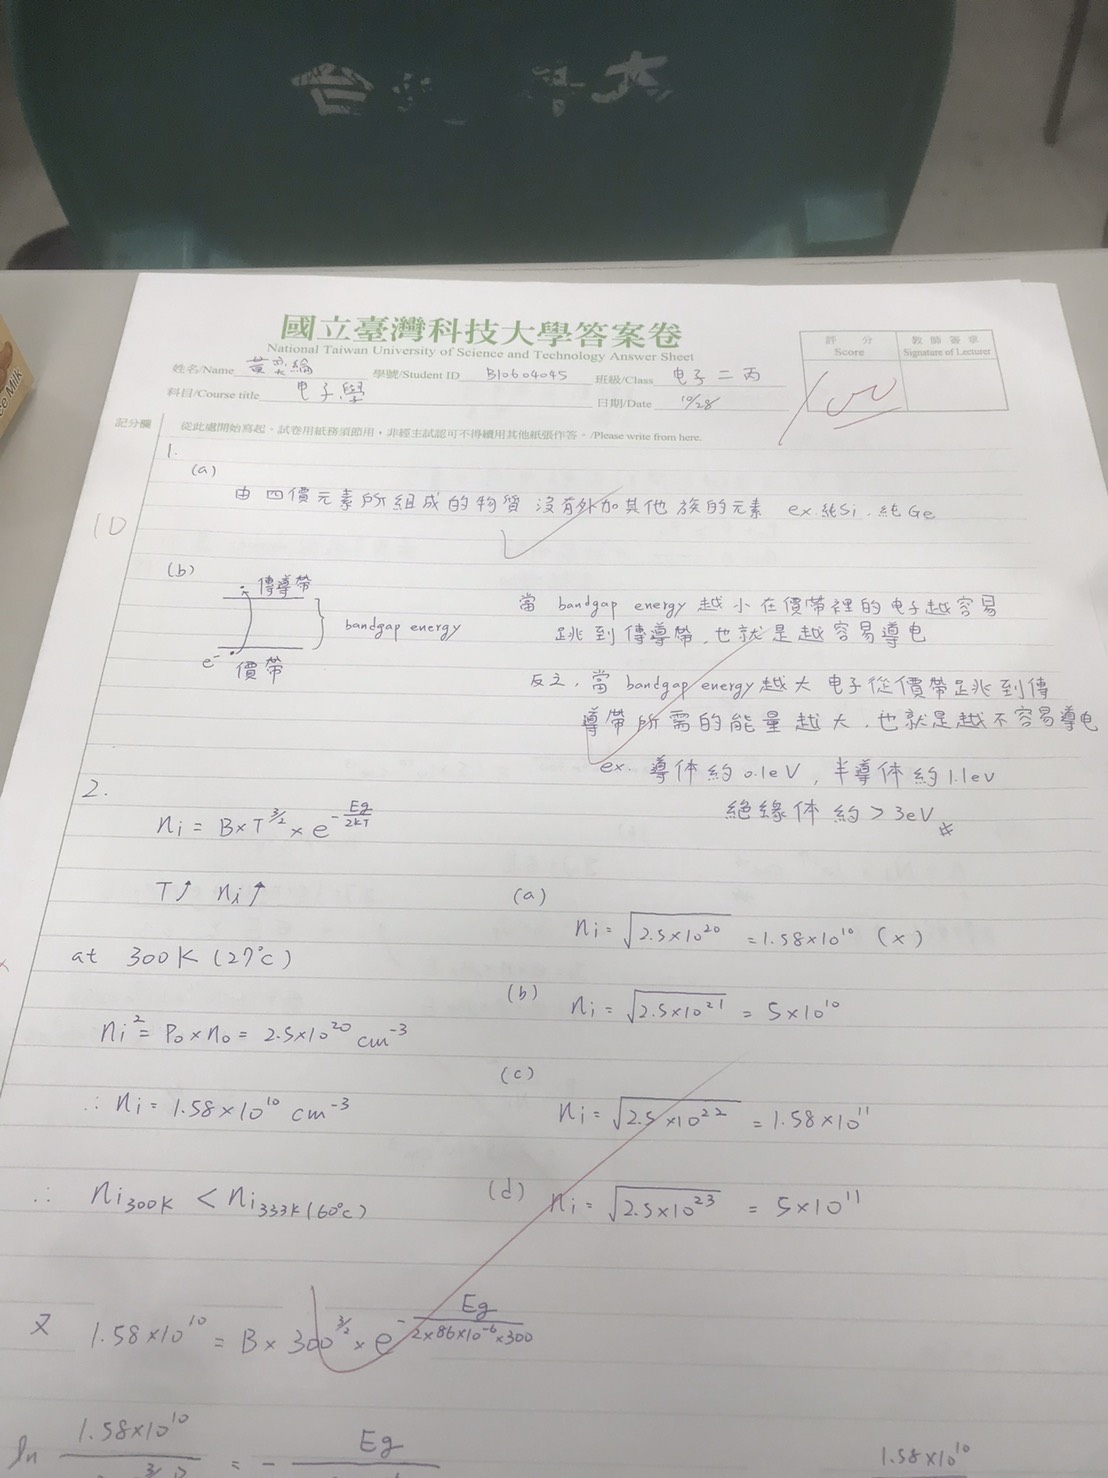 台灣科大
國立臺灣科技大學答案卷
National Taiwan University of Science and Technology Answer Sheet
姓名/Name 黃 綸 學號/Student ID B10604045 班級/Class 电子二丙
科目/Course title 电子學 日期/Date 10/28
評 分 Score 100
教師簽章 Signature of Lecturer
記分欄 從此處開始寫起。試卷用紙務須節用,非經主試認可不得續用其他紙張作答。/Please write from here.
1.
(a)
由四價元素所組成的物質 沒有外加其他族的元素 ex.純Si.純Ge
10
(b)
傳導帶
bandgap energy
e⁻
價帶
當 bandgap energy 越小在價帶裡的电子越容易
跳到傳導帶,也就是越容易導电
反之,當 bandgap energy越大 电子從價帶跳到傳
導帶所需的能量越大,也就是越不容易導电
ex. 導体約0.1eV,半導体約1.1eV
絕緣体約>3eV
2.
ni = B×T^3/2 × e^-Eg/2kT
T↑ ni↑
at 300K (27°C)
ni² = Po×no = 2.5×10²⁰ cm⁻³
∴ ni = 1.58×10¹⁰ cm⁻³
∴ ni300K < ni333K(60°C)
(a)
ni = √2.5×10²⁰ = 1.58×10¹⁰ (x)
(b)
ni = √2.5×10²¹ = 5×10¹⁰
(c)
ni = √2.5×10²² = 1.58×10¹¹
(d) ni = √2.5×10²³ = 5×10¹¹
又 1.58×10¹⁰ = B × 300^3/2 × e^-Eg/2×86×10⁻⁶×300
ln 1.58×10¹⁰ = - Eg
1.58×10¹⁰